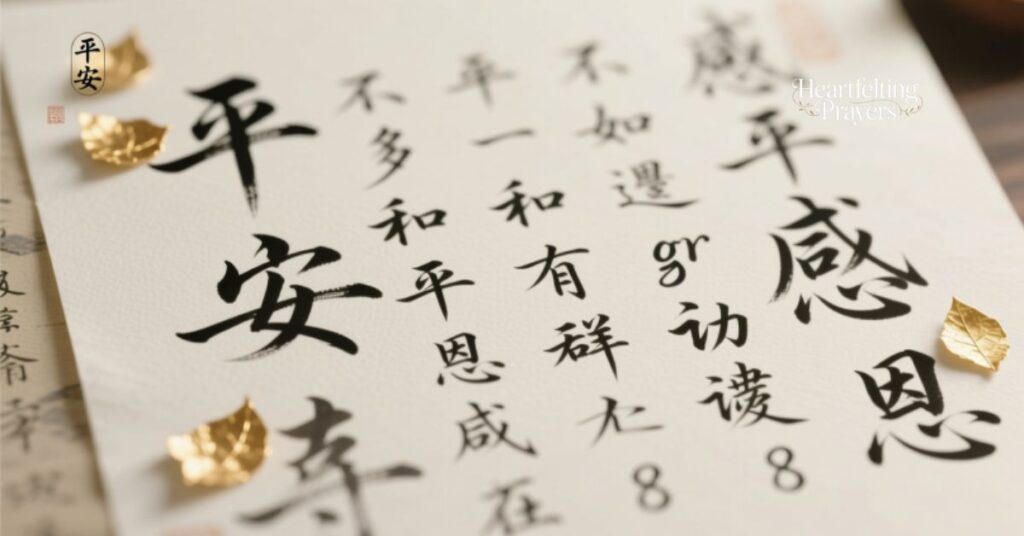 平安
Heartfelting
Prayers
感平感恩
不如gr8
平一和有群8
不多和平恩咸在
平安